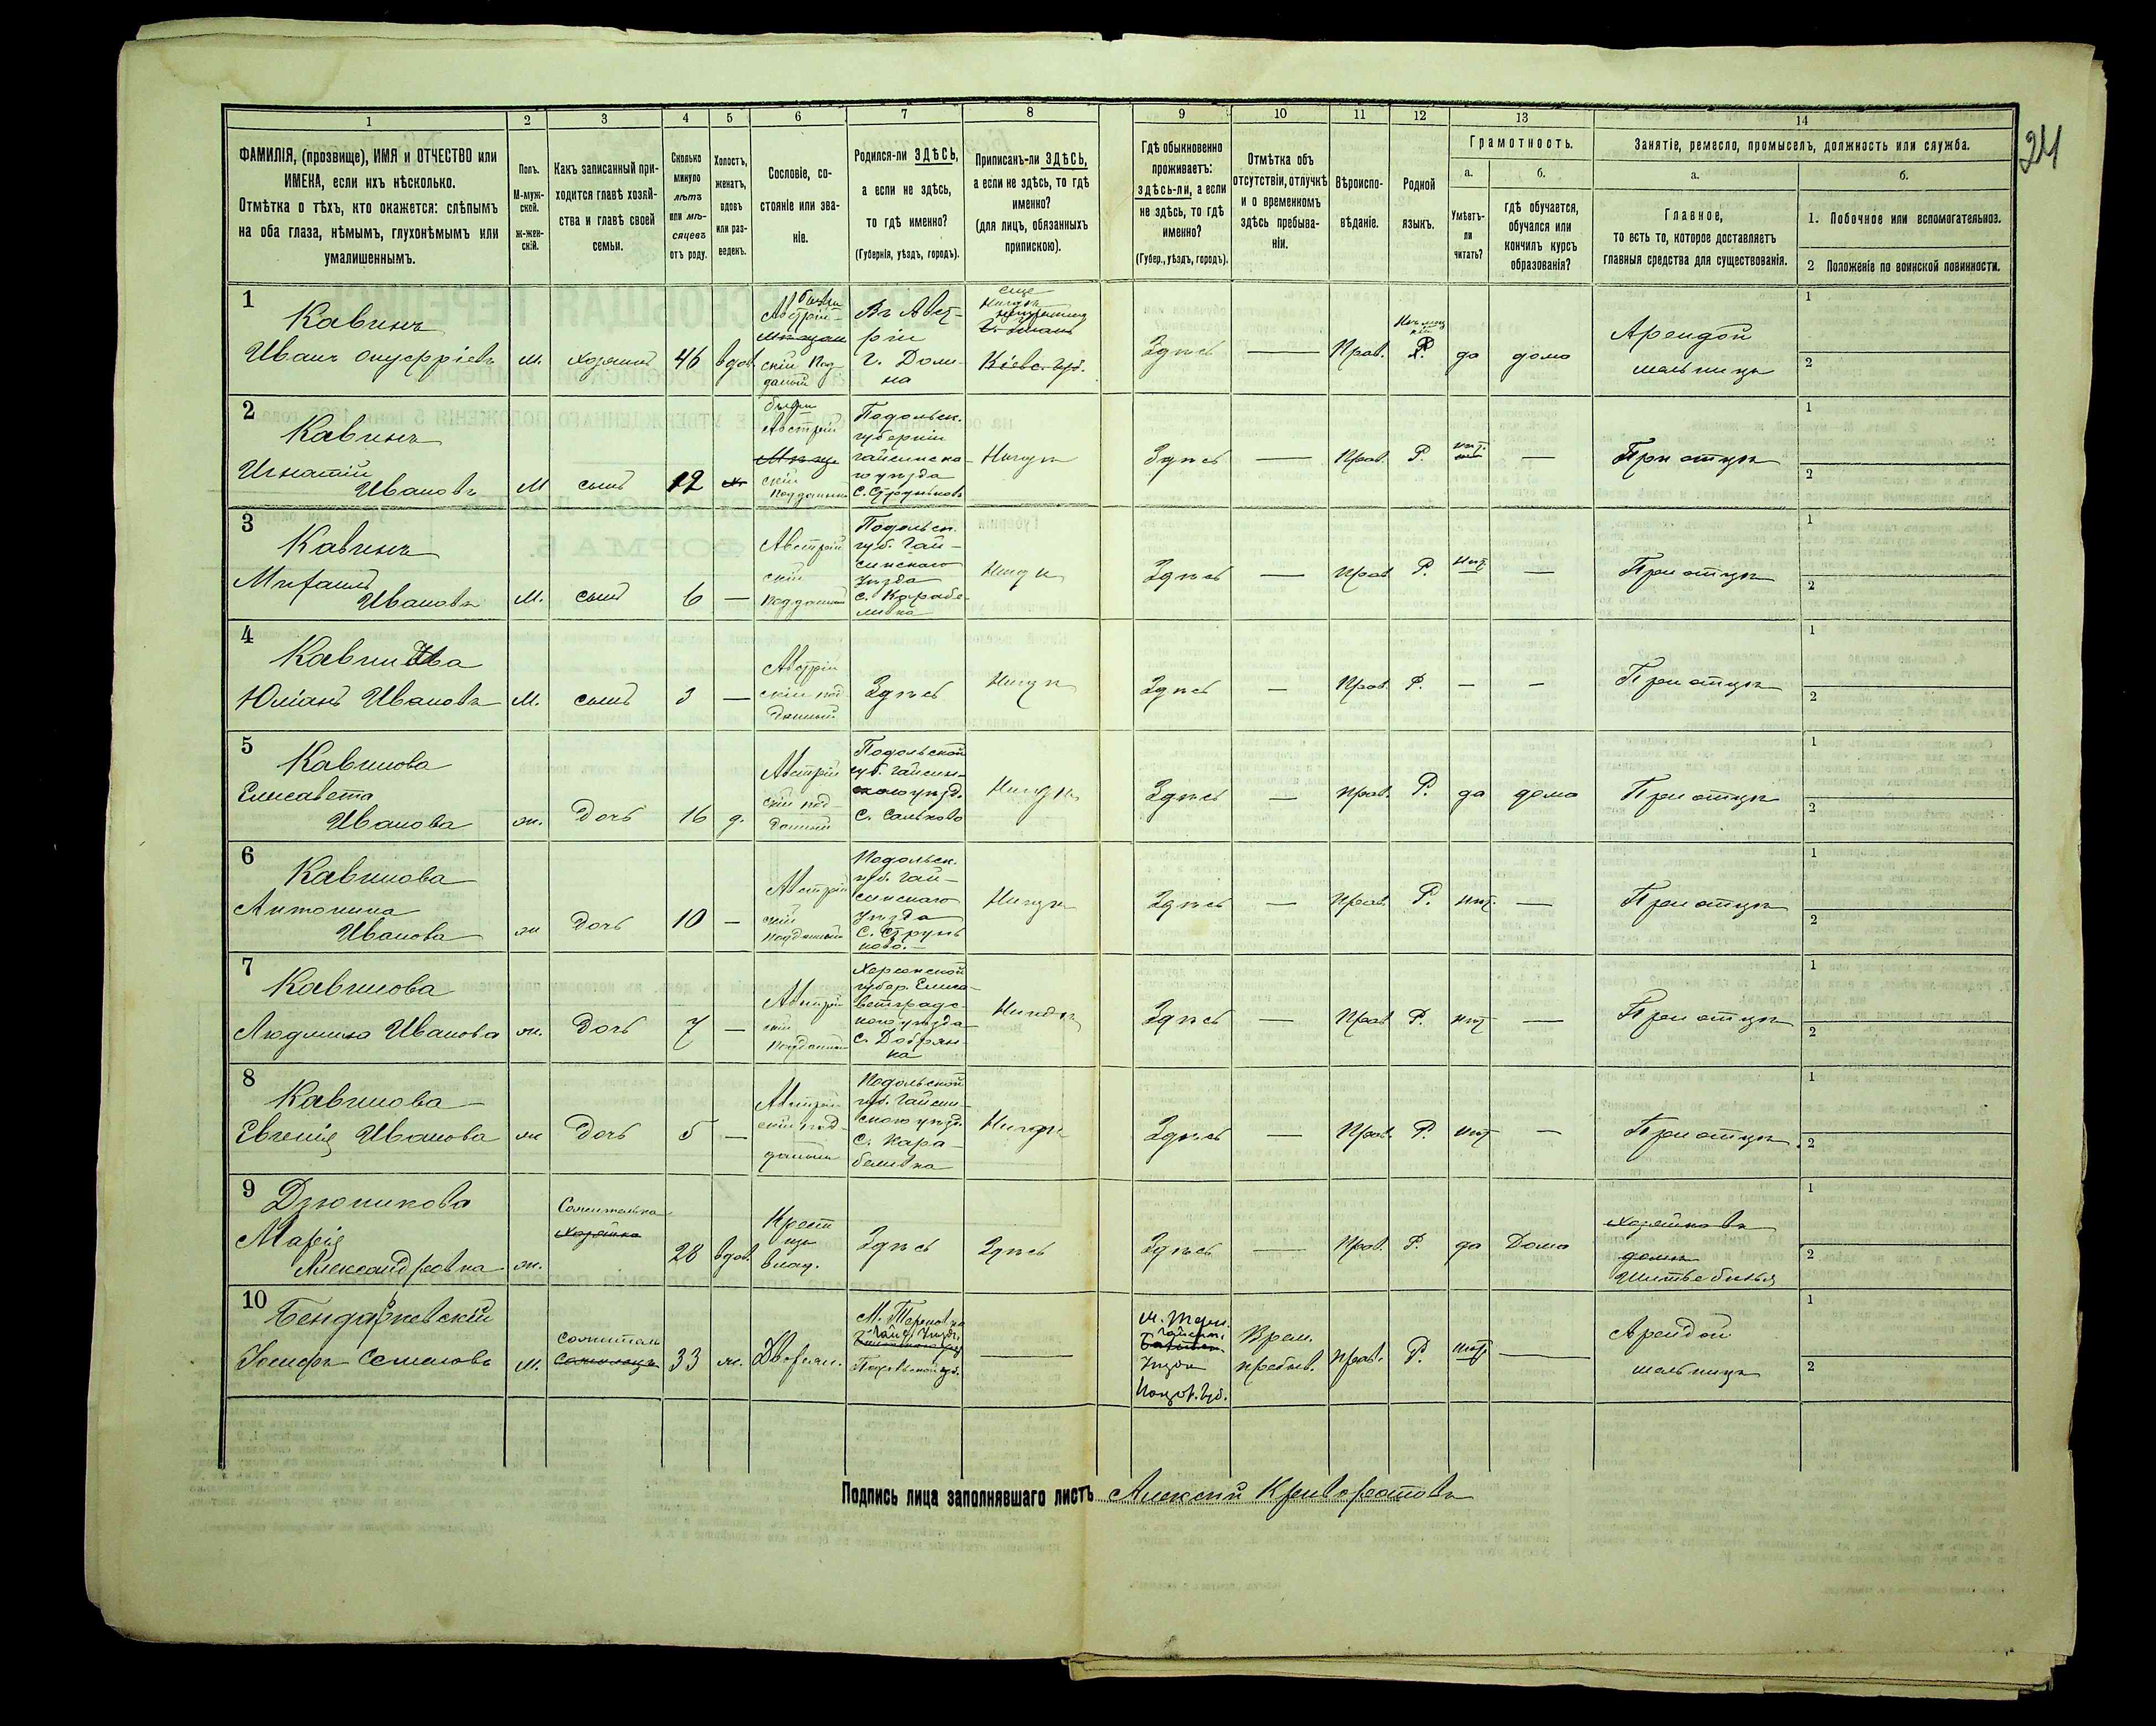 24
1
2
3
4
5
6
7
8
9
10
11
12
13
14
ФАМИЛІЯ, (прозвище), ИМЯ и ОТЧЕСТВО или
ИМЕНА, если ихъ нѣсколько.
Отмѣтка о тѣхъ, кто окажется: слѣпымъ
на оба глаза, нѣмымъ, глухонѣмымъ или
умалишеннымъ.
Полъ.
М-муж-
ской.
ж-жен-
скій.
Какъ записанный при-
ходится главѣ хозяй-
ства и главѣ своей
семьи.
Сколько
минуло
лѣтъ
или мѣ-
сяцевъ
отъ роду.
Холостъ,
женатъ,
вдовъ
или раз-
веденъ.
Сословіе, со-
стояніе или зва-
ніе.
Родился-ли ЗДѢСЬ,
а если не здѣсь,
то гдѣ именно?
(Губернія, уѣздъ, городъ).
Приписанъ-ли ЗДѢСЬ,
а если не здѣсь, то гдѣ
именно?
(для лицъ, обязанныхъ
припискою).
Гдѣ обыкновенно
проживаетъ:
здѣсь-ли, а если
не здѣсь, то гдѣ
именно?
(Губер., уѣздъ, городъ).
Отмѣтка объ
отсутствіи, отлучкѣ
и о временномъ
здѣсь пребыва-
ніи.
Вѣроиспо-
вѣданіе.
Родной
языкъ.
Грамотность.
а.
Умѣетъ-
ли
читать?
б.
гдѣ обучается,
обучался или
кончилъ курсъ
образованія?
Занятіе, ремесло, промыселъ, должность или служба.
а.
Главное,
то есть то, которое доставляетъ
главныя средства для существованія.
б.
1. Побочное или вспомогательное.
2 Положеніе по воинской повинности.
1
Кавинъ
Иванъ Онуфріевъ
м.
хозяинъ
46
вдов.
Въ Авст-
ріи
г. Доли-
на
Кіевс. губ.
Здѣсь
Прав.
Р.
да
дома
Арендой
мельницы
1
2
2
Кавинъ
Игнатій
Ивановъ
М
сынъ
12
Австрій
скій
подданный
Подольск.
губерніи
Гайсинска
го уѣзда
Нигдѣ
Здѣсь
Прав.
Р.
нѣт
При отцѣ
1
2
3
Кавинъ
Михаилъ
Ивановъ
М.
сынъ
6
Австрій
скій
подданный
Подольск.
губ. Гай-
синскаго
Уѣзда
с. Карабе-
ливка
Нигдѣ
Здѣсь
Прав.
Р.
нѣт
При отцѣ
1
2
4
Юліанъ Ивановъ
М.
сынъ
3
Австрій
скій под
данный
Здѣсь
Нигдѣ
Здѣсь
Прав.
Р.
При отцѣ
1
2
5
Кавинова
Елисавета
Иванова
ж.
Дочь
16
д.
Австрій
скій под-
данный
Подольской
губ. Гайсин-
ского уѣзд.
С. Сальково
Нигдѣ
Здѣсь
Прав.
Р.
да
дома
При отцѣ
1
2
6
Кавинова
Антонина
Иванова
ж
Дочь
10
Австрій
скій
подданный
Подольск.
губ. Гай-
синскаго
Уѣзда
С. Струнь
ково.
Нигдѣ
Здѣсь
Прав
Р.
нѣт
При отцѣ
1
2
7
Кавинова
Людмила Иванова
ж.
Дочь
7
Австрій
скій
подданный
Херсонской
губер. Елиса-
ветградс-
кого уѣзда
С. Добрян-
ка
Нигдѣ
Здѣсь
Прав
Р.
нѣт
При отцѣ
1
2
8
Кавинова
Евгенія Иванова
ж
Дочь
5
Австрій
скій под-
данный
Подольской
губ. Гайсин-
ского уѣзд.
С. Кара-
беливка
Нигдѣ
Здѣсь
Прав.
Р.
нѣт
При отцѣ
1
2
9
Марія
Александровна
ж.
Сожителька
Хозяйка
28
вдов.
Здѣсь
Здѣсь
Здѣсь
Прав.
Р.
да
Дома
Шитье бѣлья
1
2
10
Іосифъ Семеновъ
М.
33
ж.
Дворян.
Подольской губ.
Уѣзда
Врем.
пребыв.
Прав.
Р.
нѣт
Арендой
мельницы
1
2
Подпись лица заполнявшаго листъ Алексѣй Криворотовъ